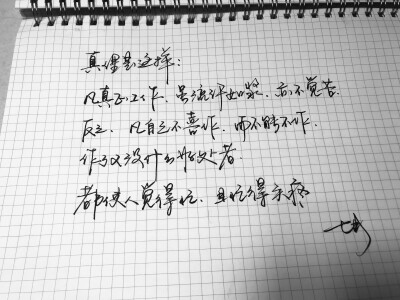 真理是这样：
凡真正工作，虽流汗如浆，亦不觉苦。
反之，凡自己不喜作，而不能不作，
作了又没什么好处者，
都使人觉得忙，且忙得头疼